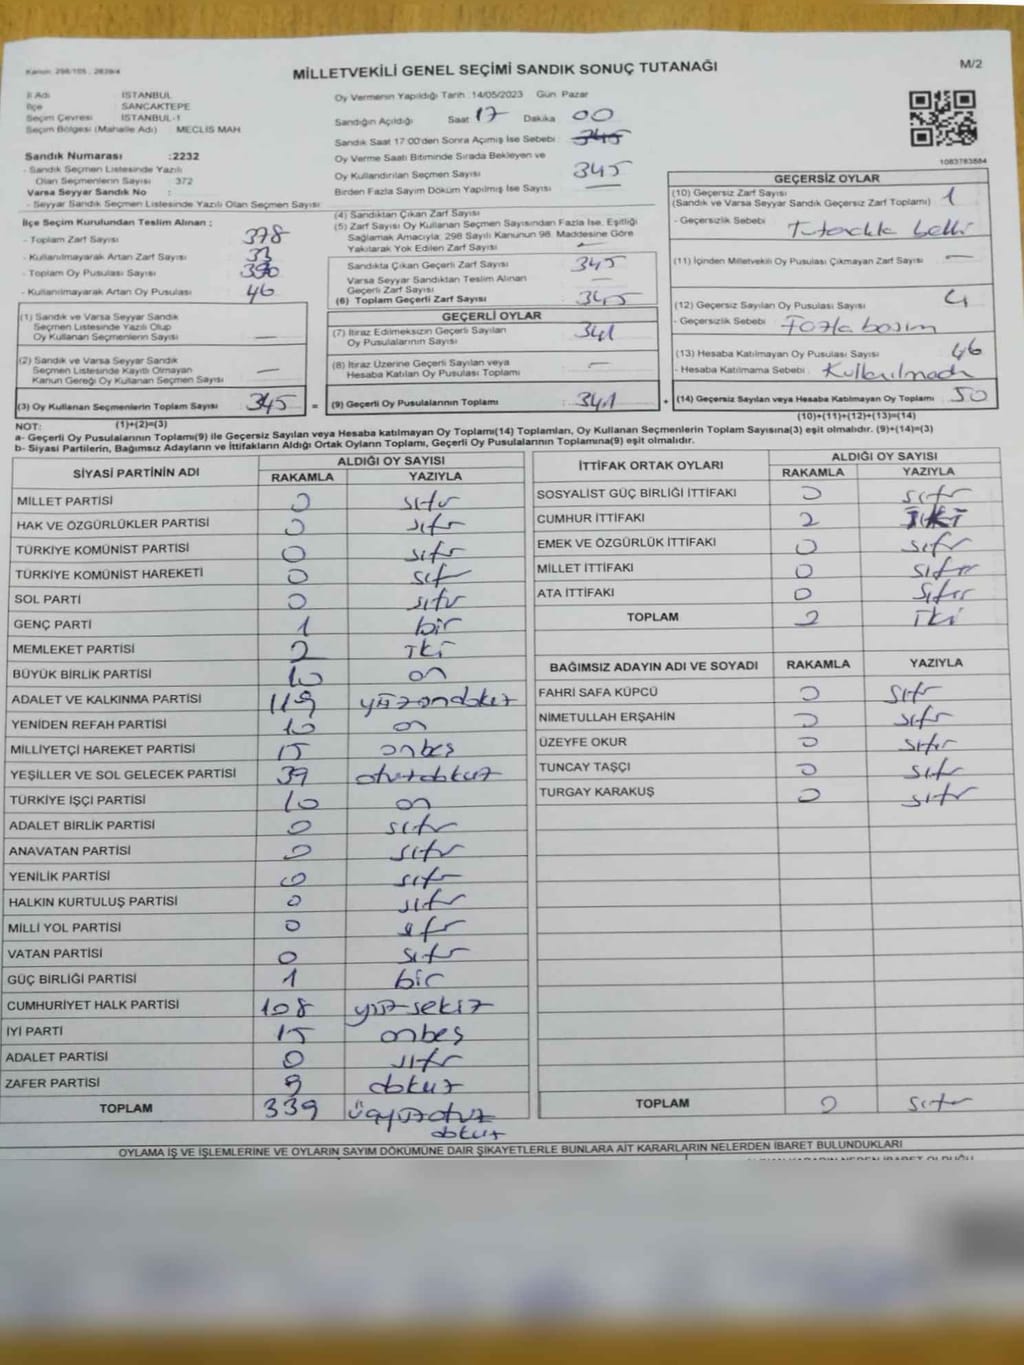 Kanun: 298/105 , 2839/4
MİLLETVEKİLİ GENEL SEÇİMİ SANDIK SONUÇ TUTANAĞI
M/2
İl Adı : İSTANBUL
İlçe SANCAKTEPE
Seçim Çevresi : İSTANBUL-1
Seçim Bölgesi (Mahalle Adı) : MECLİS MAH
Sandık Numarası :2232
- Sandık Seçmen Listesinde Yazılı
Olan Seçmenlerin Sayısı : 372
Varsa Seyyar Sandık No :
- Seyyar Sandık Seçmen Listesinde Yazılı Olan Seçmen Sayısı :
Oy Vermenin Yapıldığı Tarih :14/05/2023 Gün: Pazar
Sandığın Açıldığı : Saat 17 Dakika 00
Sandık Saat 17:00'den Sonra Açımış İse Sebebi : 345
Oy Verme Saati Bitiminde Sırada Bekleyen ve
Oy Kullandırılan Seçmen Sayısı : 345
Birden Fazla Sayım Döküm Yapılmış İse Sayısı : —
1083783884
İlçe Seçim Kurulundan Teslim Alınan ;
- Toplam Zarf Sayısı : 378
- Kullanılmayarak Artan Zarf Sayısı : 33
- Toplam Oy Pusulası Sayısı : 390
- Kullanılmayarak Artan Oy Pusulası : 46
(1) Sandık ve Varsa Seyyar Sandık
Seçmen Listesinde Yazılı Olup
Oy Kullanan Seçmenlerin Sayısı : —
(2) Sandık ve Varsa Seyyar Sandık
Seçmen Listesinde Kayıtlı Olmayan
Kanun Gereği Oy Kullanan Seçmen Sayısı : —
(3) Oy Kullanan Seçmenlerin Toplam Sayısı : 345 =
(1)+(2)=(3)
(4) Sandıktan Çıkan Zarf Sayısı
(5) Zarf Sayısı Oy Kullanan Seçmen Sayısından Fazla İse, Eşitliği
Sağlamak Amacıyla, 298 Sayılı Kanunun 98. Maddesine Göre
Yakılarak Yok Edilen Zarf Sayısı : —
Sandıkta Çıkan Geçerli Zarf Sayısı : 345
Varsa Seyyar Sandıktan Teslim Alınan
Geçerli Zarf Sayısı : —
(6) Toplam Geçerli Zarf Sayısı : 345
GEÇERLİ OYLAR
(7) İtiraz Edilmeksizin Geçerli Sayılan
Oy Pusulalarının Sayısı : 341
(8) İtiraz Üzerine Geçerli Sayılan veya
Hesaba Katılan Oy Pusulası Toplamı : —
(9) Geçerli Oy Pusulalarının Toplamı : 341 +
GEÇERSİZ OYLAR
(10) Geçersiz Zarf Sayısı : 1
(Sandık ve Varsa Seyyar Sandık Geçersiz Zarf Toplamı)
- Geçersizlik Sebebi : Tutarakla belli
(11) İçinden Milletvekili Oy Pusulası Çıkmayan Zarf Sayısı : —
(12) Geçersiz Sayılan Oy Pusulası Sayısı : 4
- Geçersizlik Sebebi : Fazla basım
(13) Hesaba Katılmayan Oy Pusulası Sayısı : 46
- Hesaba Katılmama Sebebi : Kullanılmadı
(14) Geçersiz Sayılan veya Hesaba Katılmayan Oy Toplamı : 50
(10)+(11)+(12)+(13)=(14)
NOT:
a- Geçerli Oy Pusulalarının Toplamı(9) ile Geçersiz Sayılan veya Hesaba katılmayan Oy Toplamı(14) Toplamları, Oy Kullanan Seçmenlerin Toplam Sayısına(3) eşit olmalıdır. (9)+(14)=(3)
b- Siyasi Partilerin, Bağımsız Adayların ve İttifakların Aldığı Ortak Oyların Toplamı, Geçerli Oy Pusulalarının Toplamına(9) eşit olmalıdır.
SİYASİ PARTİNİN ADI ALDIĞI OY SAYISI
RAKAMLA YAZIYLA
MİLLET PARTİSİ 0 sıfır
HAK VE ÖZGÜRLÜKLER PARTİSİ 0 sıfır
TÜRKİYE KOMÜNİST PARTİSİ 0 sıfır
TÜRKİYE KOMÜNİST HAREKETİ 0 sıfır
SOL PARTİ 0 sıfır
GENÇ PARTİ 1 bir
MEMLEKET PARTİSİ 2 İki
BÜYÜK BİRLİK PARTİSİ 10 on
ADALET VE KALKINMA PARTİSİ 119 yüzondokuz
YENİDEN REFAH PARTİSİ 10 on
MİLLİYETÇİ HAREKET PARTİSİ 15 onbeş
YEŞİLLER VE SOL GELECEK PARTİSİ 39 otuzdokuz
TÜRKİYE İŞÇİ PARTİSİ 10 on
ADALET BİRLİK PARTİSİ 0 sıfır
ANAVATAN PARTİSİ 0 sıfır
YENİLİK PARTİSİ 0 sıfır
HALKIN KURTULUŞ PARTİSİ 0 sıfır
MİLLİ YOL PARTİSİ 0 sıfır
VATAN PARTİSİ 0 sıfır
GÜÇ BİRLİĞİ PARTİSİ 1 bir
CUMHURİYET HALK PARTİSİ 108 yüzsekiz
İYİ PARTİ 15 onbeş
ADALET PARTİSİ 0 sıfır
ZAFER PARTİSİ 9 dokuz
TOPLAM 339 üçyüzotuz
dokuz
İTTİFAK ORTAK OYLARI ALDIĞI OY SAYISI
RAKAMLA YAZIYLA
SOSYALİST GÜÇ BİRLİĞİ İTTİFAKI 0 sıfır
CUMHUR İTTİFAKI 2 İKİ
EMEK VE ÖZGÜRLÜK İTTİFAKI 0 sıfır
MİLLET İTTİFAKI 0 sıfır
ATA İTTİFAKI 0 sıfır
TOPLAM 2 İki
BAĞIMSIZ ADAYIN ADI VE SOYADI RAKAMLA YAZIYLA
FAHRİ SAFA KÜPCÜ 0 sıfır
NİMETULLAH ERŞAHİN 0 sıfır
ÜZEYFE OKUR 0 sıfır
TUNCAY TAŞÇI 0 sıfır
TURGAY KARAKUŞ 0 sıfır
TOPLAM 0 sıfır
OYLAMA İŞ VE İŞLEMLERİNE VE OYLARIN SAYIM DÖKÜMÜNE DAİR ŞİKAYETLERLE BUNLARA AİT KARARLARIN NELERDEN İBARET BULUNDUKLARI